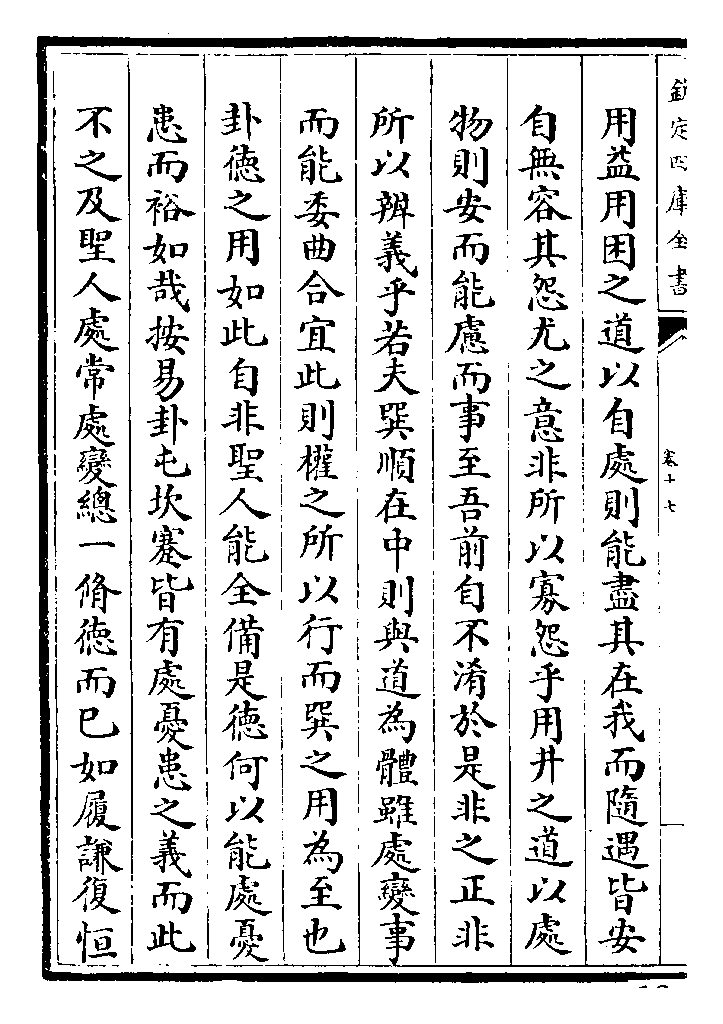 欽定四庫全書
卷十七
用益用困之道以自處則能盡其在我而隨遇皆安
自無容其怨尤之意非所以寡怨乎用井之道以處
物則安而能慮而事至吾前自不淆於是非之正非
所以辨義乎若夫巽順在中則與道為體雖處變事
而能委曲合宜此則權之所以行而巽之用為至也
卦德之用如此自非聖人能全備是德何以能處憂
患而裕如哉按易卦屯坎蹇皆有處憂患之義而此
不之及聖人處常處變總一脩德而已如履謙復恒